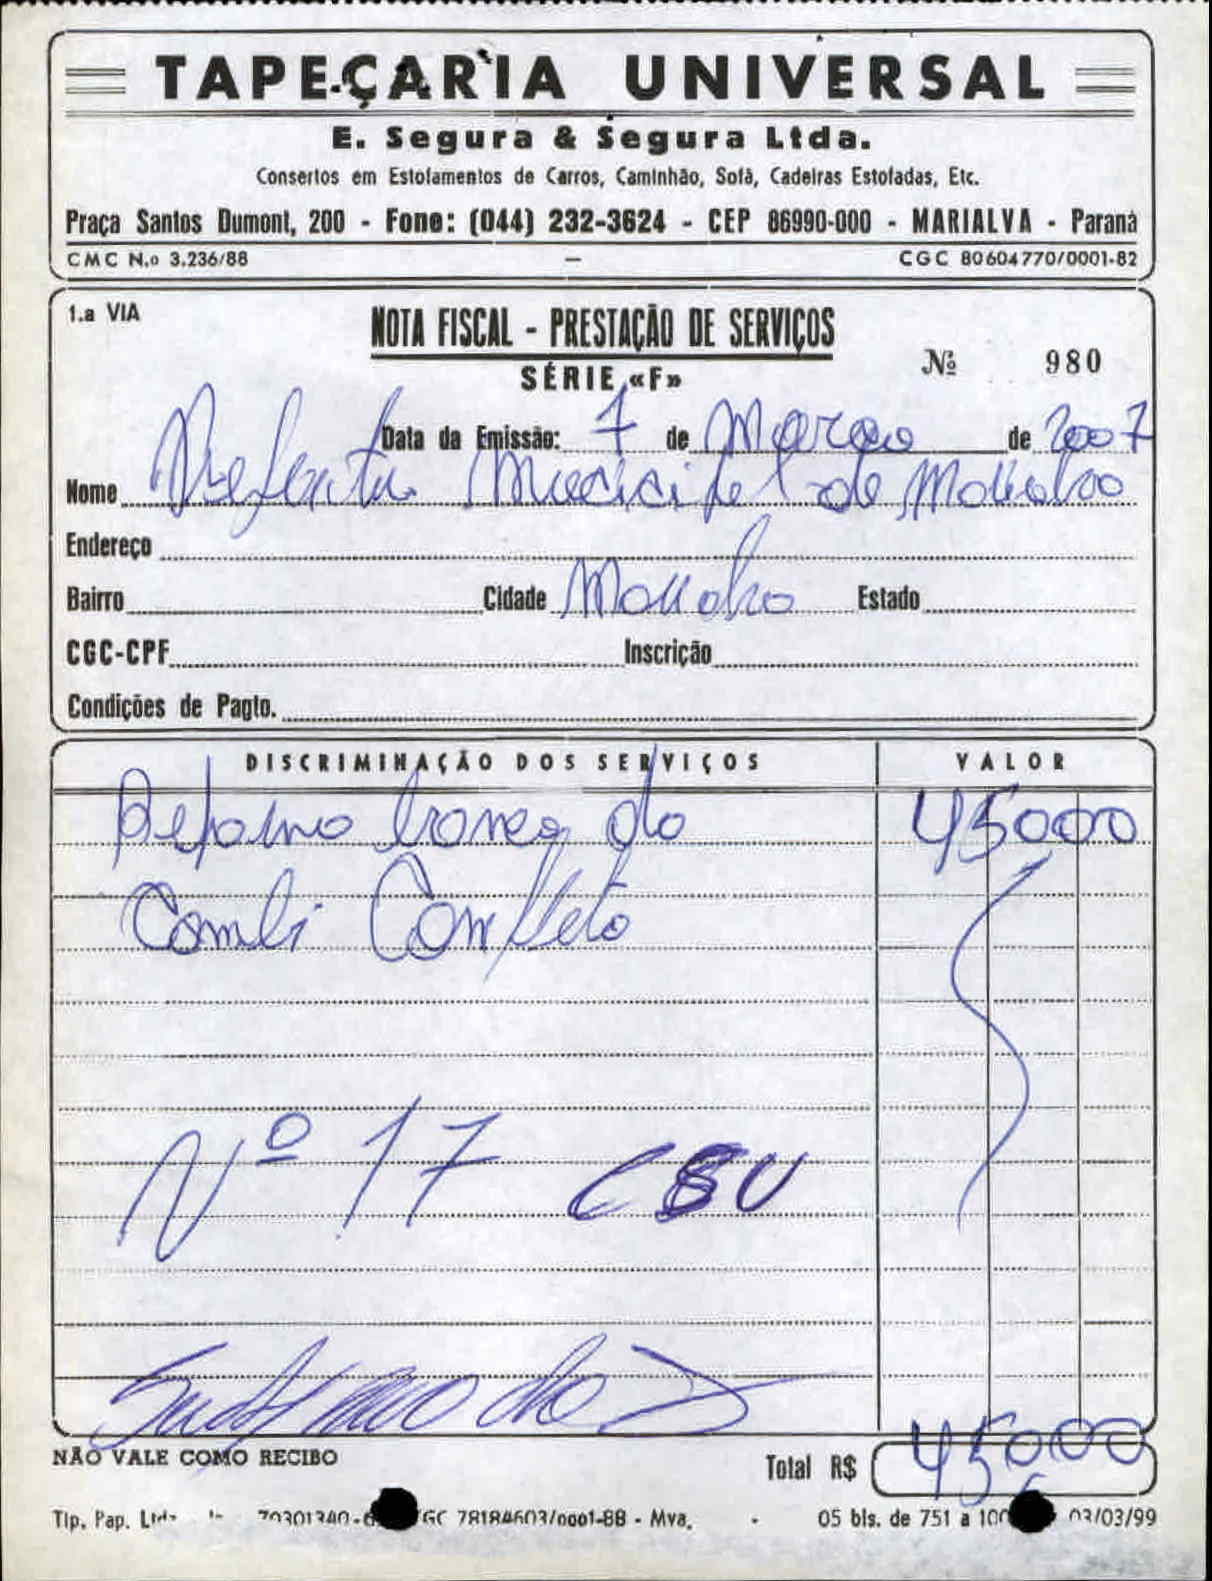 TAPEÇARIA UNIVERSAL
E. Segura & Segura Ltda.
Consertos em Estofamentos de Carros, Caminhão, Sofá, Cadeiras Estofadas, Etc.
Praça Santos Dumont, 200 - Fone: (044) 232-3624 - CEP 86990-000 - MARIALVA - Paraná
CMC N.o 3.236/88 - CGC 80604770/0001-82
1.a VIA
NOTA FISCAL - PRESTAÇÃO DE SERVIÇOS
SÉRIE «F»
Nº 980
Data da Emissão: 7 de Março de 2007
Nome Prefeitura Municipal de Marialva
Endereço
Bairro Cidade Marialva Estado
CGC-CPF Inscrição
Condições de Pagto.
DISCRIMINAÇÃO DOS SERVIÇOS VALOR
Reforma banco do 45000
Combi Completo
Nº 17 CSU
45000
NÃO VALE COMO RECIBO Total R$
Tip. Pap. 78184603/0001-88 - Mva. - 05 bls. de 751 a 03/03/99